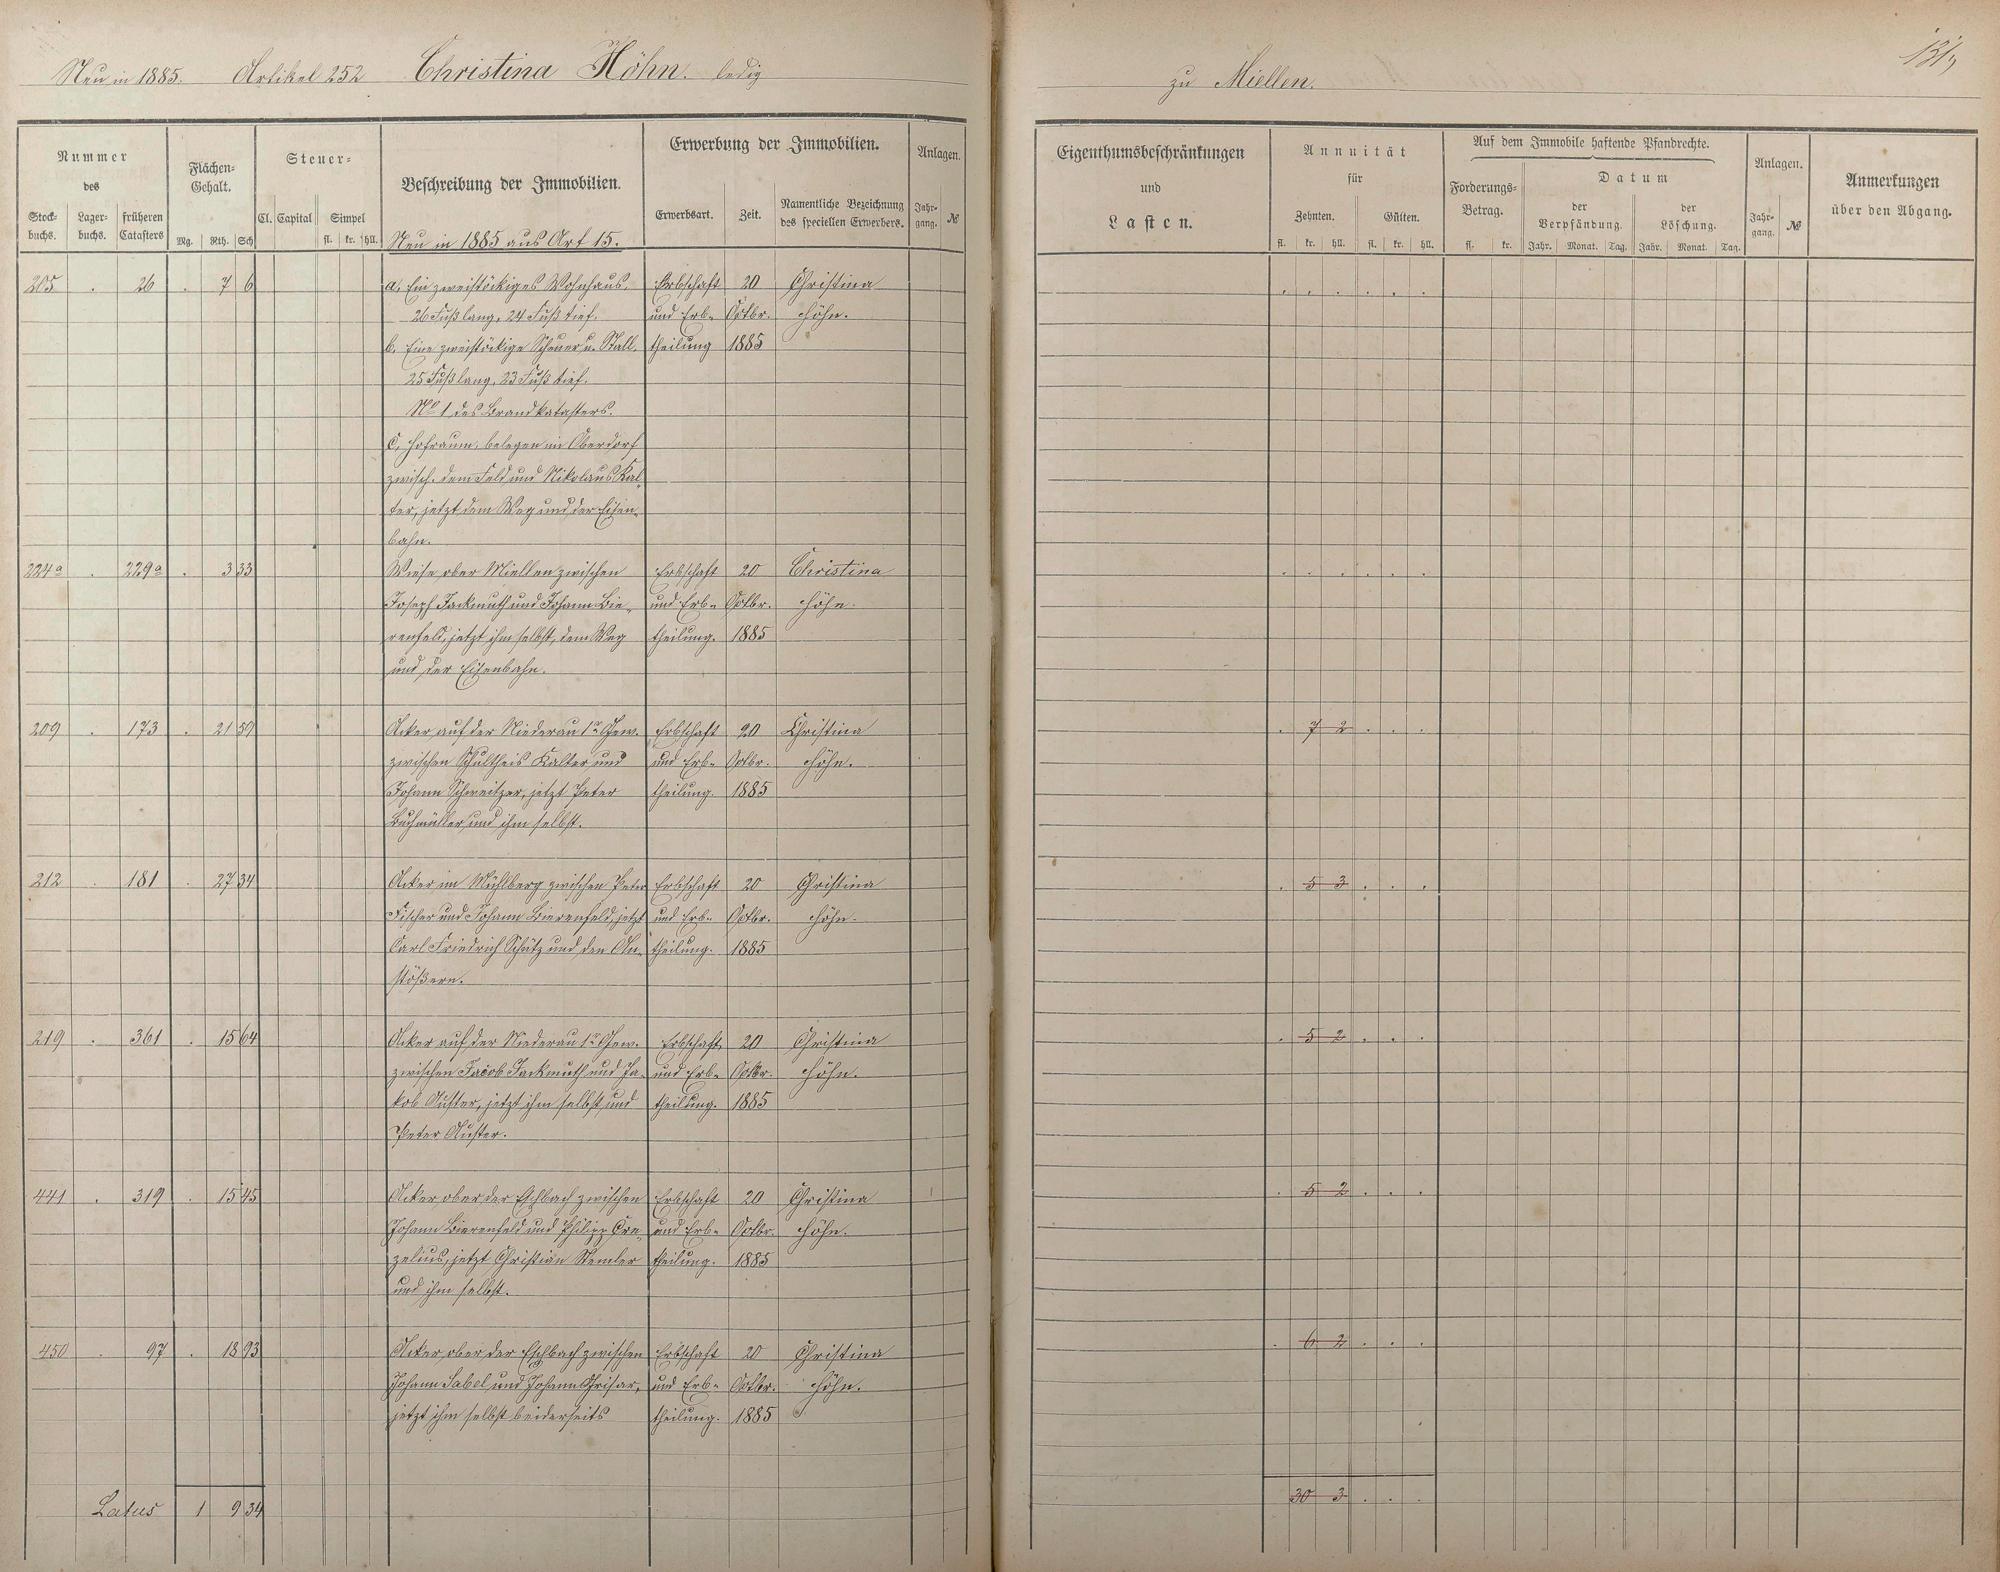 Neu in 1885. Artikel 252 Christina Höhn. ledig
Nummer
des
Stock-buchs. Lager-buchs. früheren Catasters
Flächen-Gehalt.
Mg. Rth. Sch
Steuer-
Cl. Capital Simpel
fl. kr. hll.
Beschreibung der Immobilien.
Neu in 1885 aus Art 15.
Erwerbung der Immobilien.
Erwerbsart. Zeit. Namentliche Bezeichnung des speciellen Erwerbers.
Anlagen.
Jahr-gang. №
205 . 26 . 7 6 a. Ein zweistöckiges Wohnhaus, Erbschaft 20 Christina
26 Fuß lang, 24 Fuß tief. und Erb- Octbr. Höhn.
b. Eine zweistöckige Scheuer u. Stall, theilung 1885
25 Fuß lang, 23 Fuß tief.
No 1 des Brandkatasters.
C, Hofraum, belegen im Oberdorf
zwisch. dem Feld und Nikolaus Kal-
ter, jetzt dem Weg und der Eisen-
bahn.
224a . 229a . 3 33 Wiese ober Miellen zwischen Erbschaft 20 Christina
Joseph Fackmuth und Johann Bie- und Erb- Octbr. Höhn.
renfeld, jetzt ihm selbst, dem Weg theilung. 1885
und der Eisenbahn.
209 . 173 . 21 59 Acker auf der Niederau 1r Gew. Erbschaft 20 Christina
zwischen Schultheis Kalter und und Erb- Octbr. Höhn.
Johann Schweitzer, jetzt Peter theilung. 1885
Buchmüller und ihm selbst.
212 . 181 . 27 34 Acker im Mühlberg zwischen Peter Erbschaft 20 Christina
Fischer und Johann Bierenfeld, jetzt und Erb- Octbr. Höhn.
Carl Friedrich Schütz und den An- theilung. 1885
stößern.
219 . 361 . 15 64 Acker auf der Niederau 1r Gew. Erbschaft 20 Christina
zwischen Jacob Fackmuth und Ja- und Erb- Octbr. Höhn.
kob Auster, jetzt ihm selbst und theilung. 1885
Peter Auster.
441 . 319 . 15 45 Acker ober der Eschbach zwischen Erbschaft 20 Christina
Johann Bierenfeld und Philipp Cre- und Erb- Octbr. Höhn.
zelius, jetzt Christian Stemler theilung. 1885
und ihm selbst.
450 . 97 . 18 93 Acker ober der Eschbach zwischen Erbschaft 20 Christina
Johann Sabel und Johann und Erb- Octbr. Höhn.
jetzt ihm selbst beiderseits theilung. 1885
Latus 1 9 34
zu Miellen.
Eigenthumsbeschränkungen
und
Lasten.
Annuität
für
Zehnten. Gülten.
fl. kr. hll. fl. kr. hll.
Auf dem Immobile haftende Pfandrechte.
Forderungs-Betrag.
fl. kr.
Datum
der Verpfändung. der Löschung.
Jahr. Monat. Tag. Jahr. Monat. Tag.
Anlagen.
Jahr-gang. №
Anmerkungen
über den Abgang.
. . . . . .
. . . . . .
. 7 2 . . .
. 5 3 . . .
. 5 2 . . .
. 5 2 . . .
. 6 2 . . .
30 3 . . .